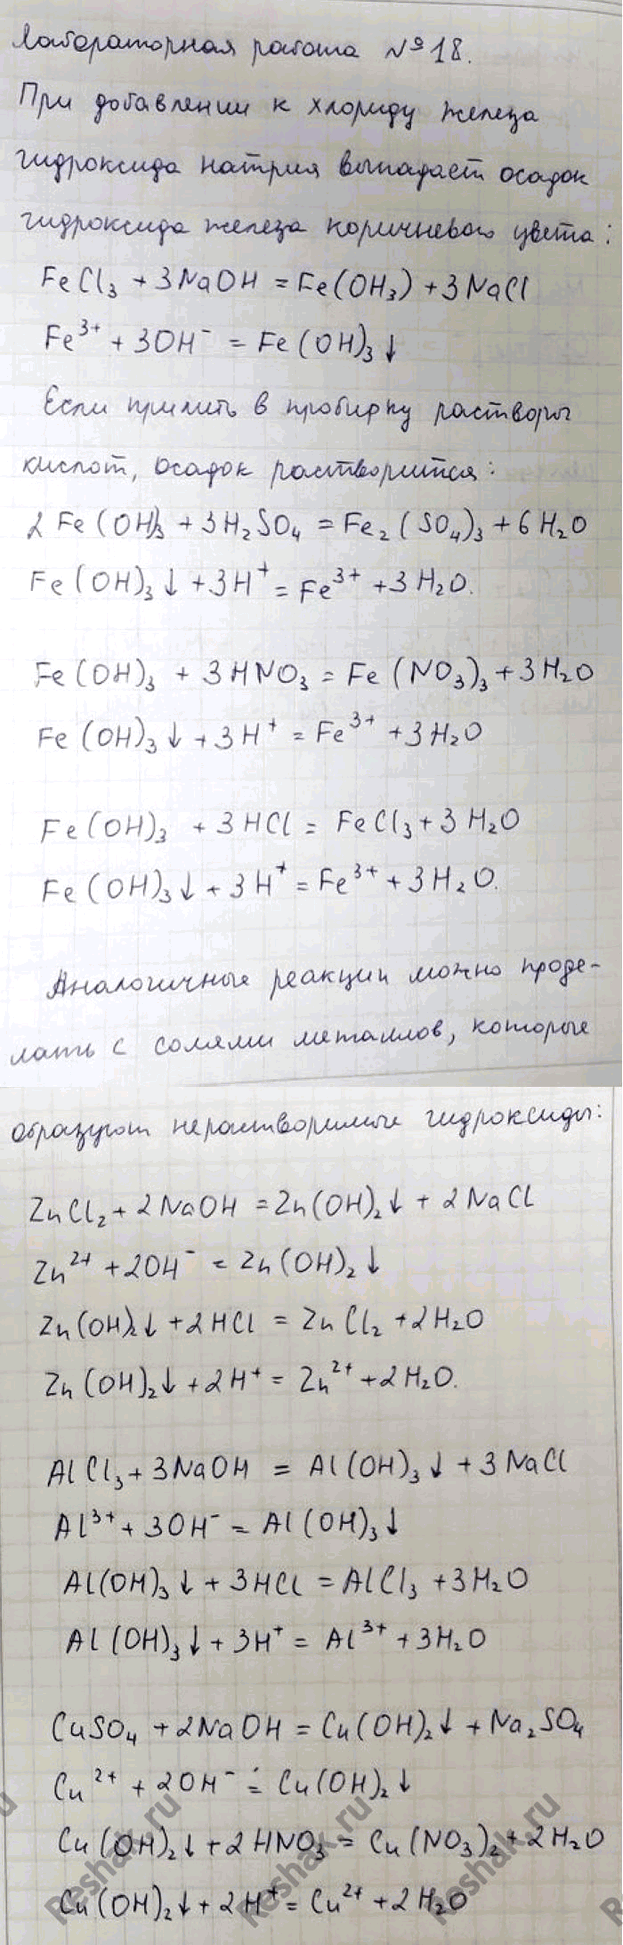 Лабораторная работа №18.
При добавлении к хлориду железа
гидроксида натрия выпадает осадок
гидроксида железа коричневого цвета:
FeCl₃ + 3NaOH = Fe(OH₃) + 3NaCl
Fe³⁺ + 3OH⁻ = Fe(OH)₃↓
Если прилить в пробирку растворы
кислот, осадок растворится:
2Fe(OH)₃ + 3H₂SO₄ = Fe₂(SO₄)₃ + 6H₂O
Fe(OH)₃↓ + 3H⁺ = Fe³⁺ + 3H₂O.
Fe(OH)₃ + 3HNO₃ = Fe(NO₃)₃ + 3H₂O
Fe(OH)₃↓ + 3H⁺ = Fe³⁺ + 3H₂O
Fe(OH)₃ + 3HCl = FeCl₃ + 3H₂O
Fe(OH)₃↓ + 3H⁺ = Fe³⁺ + 3H₂O.
Аналогичные реакции можно проде-
лать с солями металлов, которые
образуют нерастворимые гидроксиды:
ZnCl₂ + 2NaOH = Zn(OH)₂↓ + 2NaCl
Zn²⁺ + 2OH⁻ = Zn(OH)₂↓
Zn(OH)₂↓ + 2HCl = ZnCl₂ + 2H₂O
Zn(OH)₂↓ + 2H⁺ = Zn²⁺ + 2H₂O.
AlCl₃ + 3NaOH = Al(OH)₃↓ + 3NaCl
Al³⁺ + 3OH⁻ = Al(OH)₃↓
Al(OH)₃↓ + 3HCl = AlCl₃ + 3H₂O
Al(OH)₃↓ + 3H⁺ = Al³⁺ + 3H₂O
CuSO₄ + 2NaOH = Cu(OH)₂↓ + Na₂SO₄
Cu²⁺ + 2OH⁻ = Cu(OH)₂↓
Cu(OH)₂↓ + 2HNO₃ = Cu(NO₃)₂ + 2H₂O
Cu(OH)₂↓ + 2H⁺ = Cu²⁺ + 2H₂O
Reshak.ru
Reshak.ru
Reshak.ru